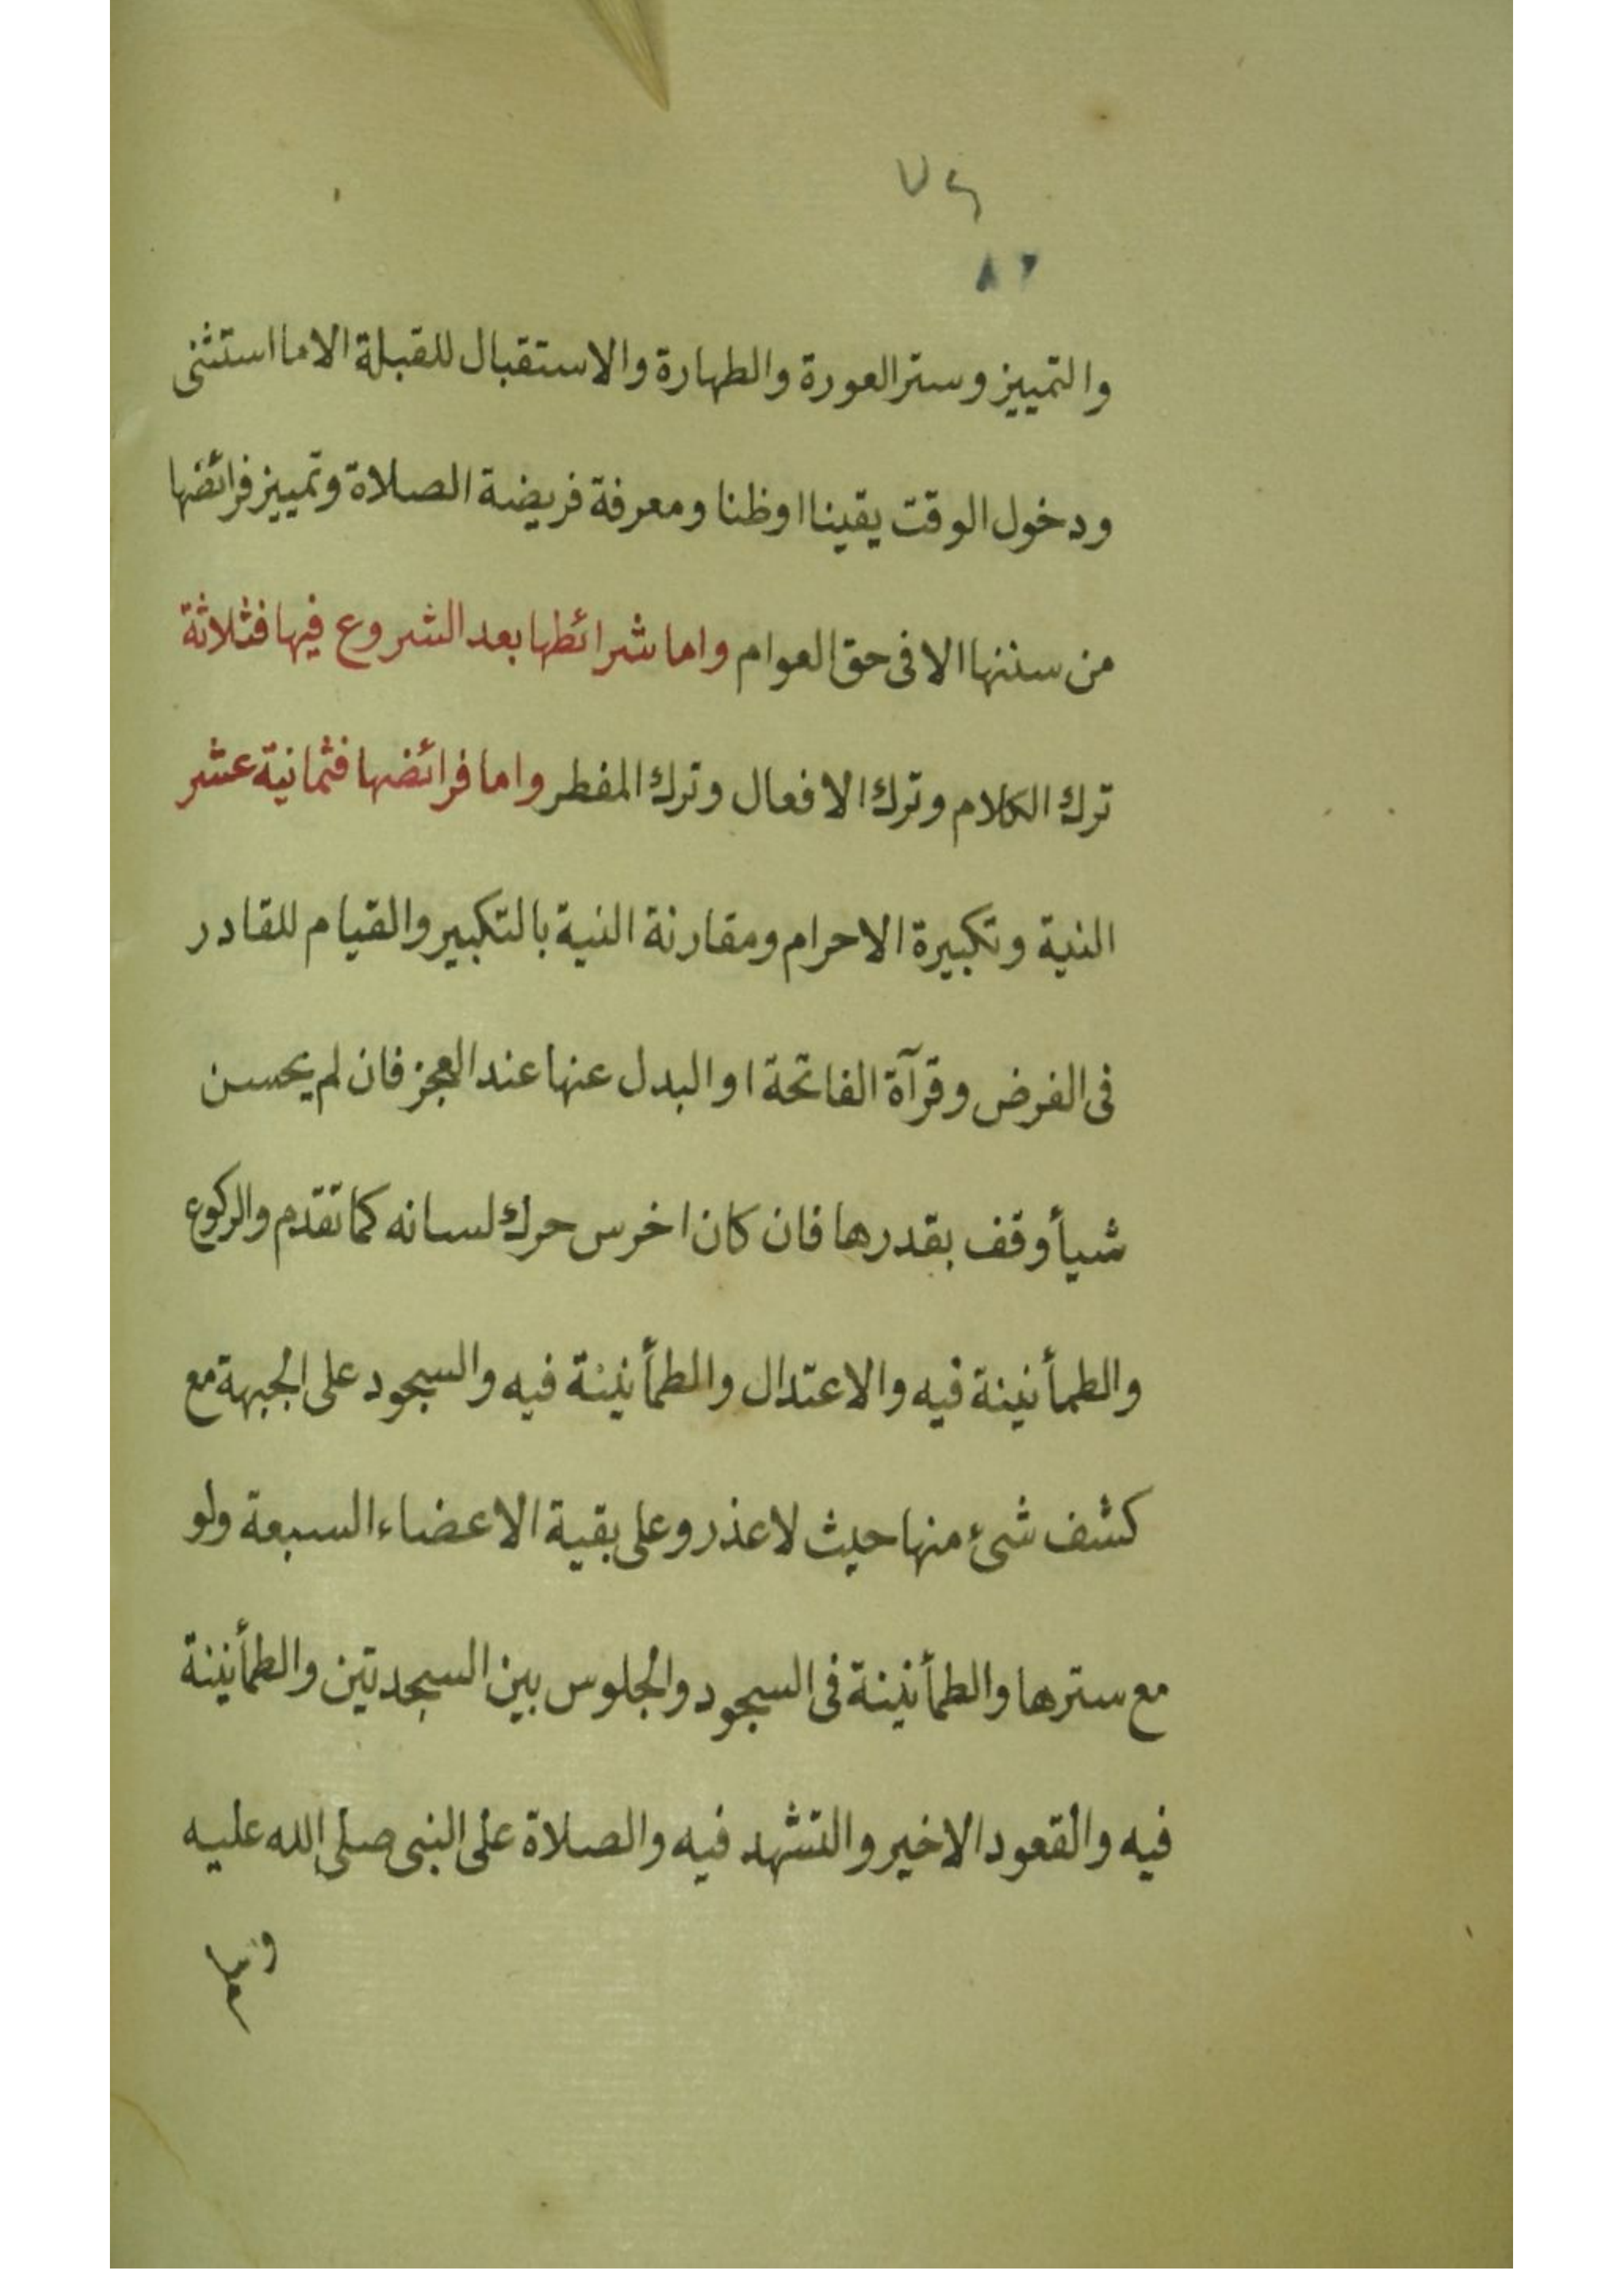 والتمييز وستر العورة والطهارة والاستقبال للقبلة الا ما استثنى
ودخول الوقت يقينا او ظنا ومعرفة فريضة الصلاة وتمييز فرائضها
من سننها الا فى حق العوام واما شرائطها بعد الشروع فيها فثلاثة
ترك الكلام وترك الافعال وترك المفطر واما فرائضها فثمانية عشر
النية وتكبيرة الاحرام ومقارنة النية بالتكبير والقيام للقادر
فى الفرض وقرآة الفاتحة او البدل عنها عند العجز فان لم يحسن
شيأ وقف بقدرها فان كان اخرس حرك لسانه كما تقدم والركوع
والطمأنينة فيه والاعتدال والطمأنينة فيه والسجود على الجبهة مع
كشف شئ منها حيث لا عذر وعلى بقية الاعضاء السبعة ولو
مع سترها والطمأنينة فى السجود والجلوس بين السجدتين والطمأنينة
فيه والقعود الاخير والتشهد فيه والصلاة على النبى صلى الله عليه